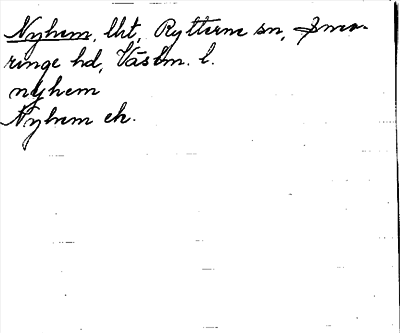 Nyhem, lht, Rytterne sn, Snev-
ringe hd, Västm. l.
nyhem
Nyhem ek.